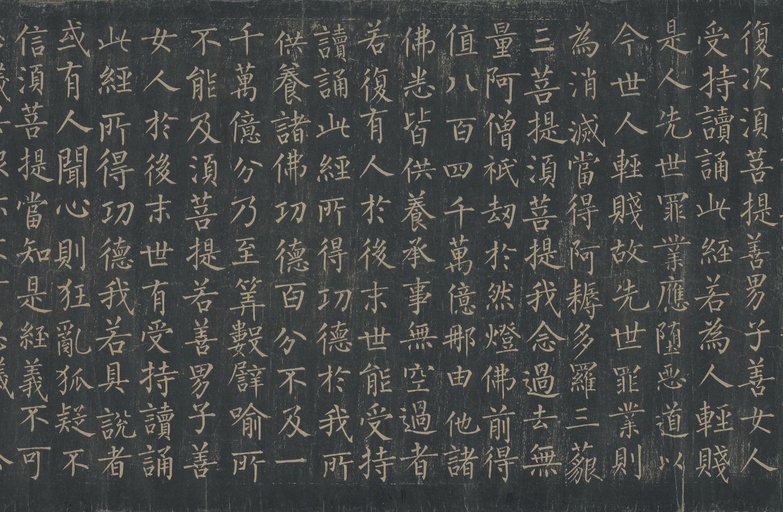 復次湏菩提善男子善女人
受持讀誦此経若為人輕賤
是人先世罪業應墮惡道以
今世人輕賤故先世罪業則
為消滅當得阿耨多羅三藐
三菩提湏菩提我念過去無
量阿僧祇劫於然燈佛前得
值八百四千萬億那由他諸
佛悉皆供養承事無空過者
若復有人於後末世能受持
讀誦此經所得功德於我所
供養諸佛功德百分不及一
千萬億分乃至筭數譬喻所
不能及湏菩提若善男子善
女人於後末世有受持讀誦
此經所得功德我若具說者
或有人聞心則狂亂狐疑不
信湏菩提當知是経義不可